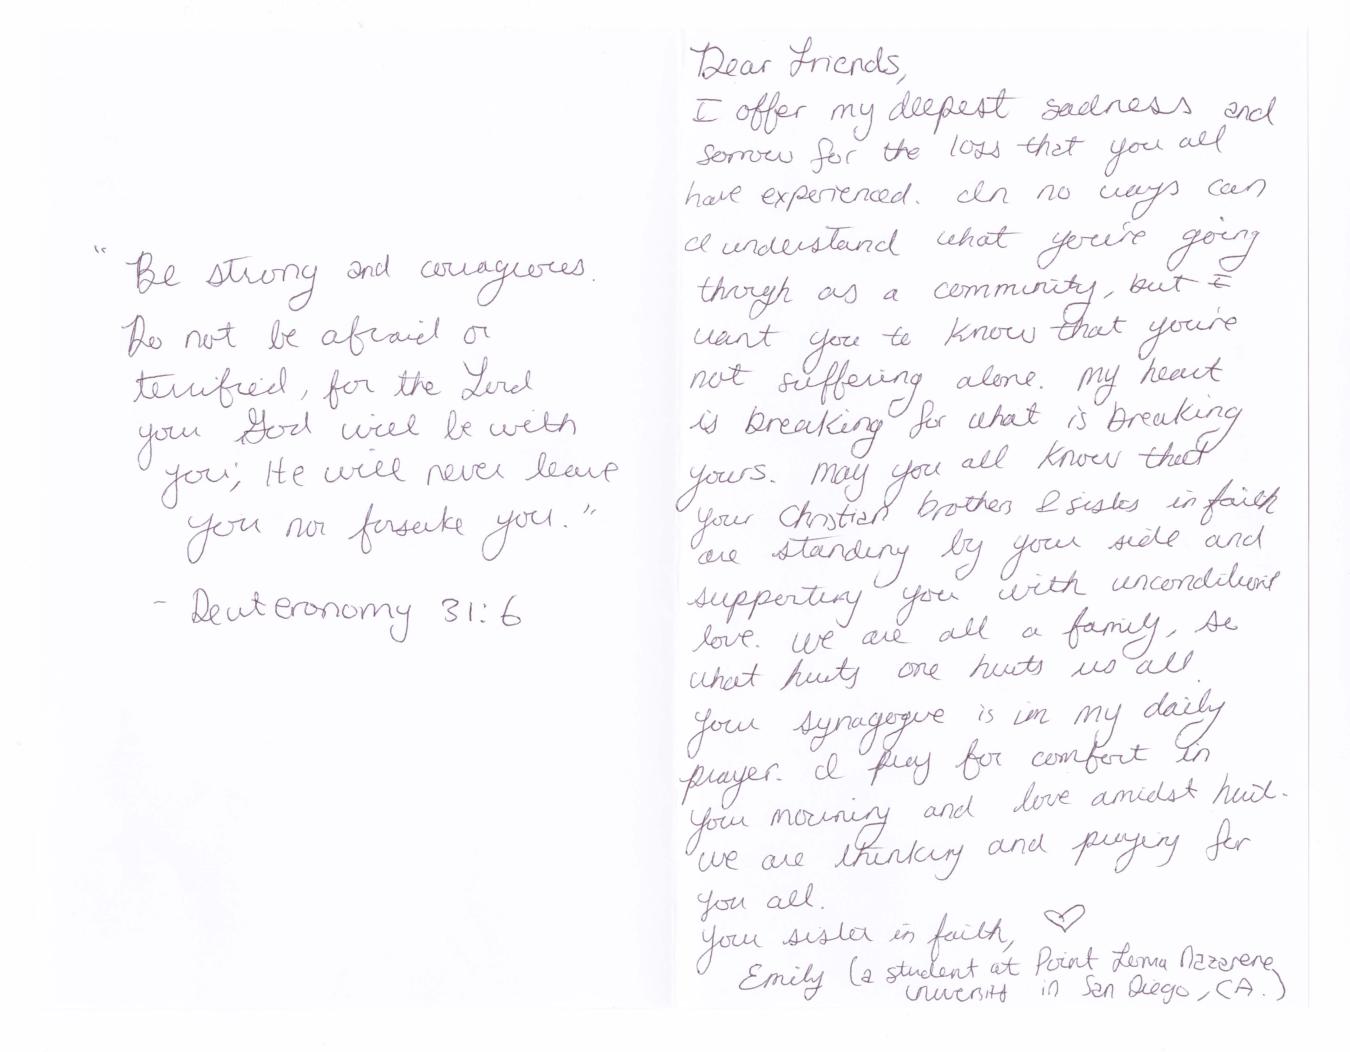 "Be strong and courageous.
Do not be afraid or
terrified, for the Lord
your God will be with
you; He will never leave
you nor forsake you."
- Deuteronomy 31:6
Dear Friends,
I offer my deepest sadness and
sorrow for the loss that you all
have experienced. In no ways can
I understand what you're going
through as a community, but I
want you to know that you're
not suffering alone. My heart
is breaking for what is breaking
yours. May you all know that
your Christian brothers & sisters in faith
are standing by your side and
supporting you with unconditional
love. We are all a family, so
what hurts one hurts us all.
Your synagogue is in my daily
prayer. I pray for comfort in
your mourning and love amidst hurt.
We are thinking and praying for
you all.
Your sister in faith, ♡
Emily (a student at Point Loma Nazarene
University in San Diego, CA.)